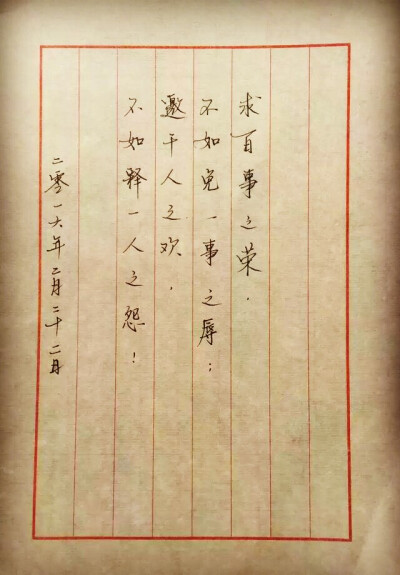 求百事之荣，
不如免一事之辱；
邀千人之欢，
不如释一人之怨！
二零一六年二月二十二日